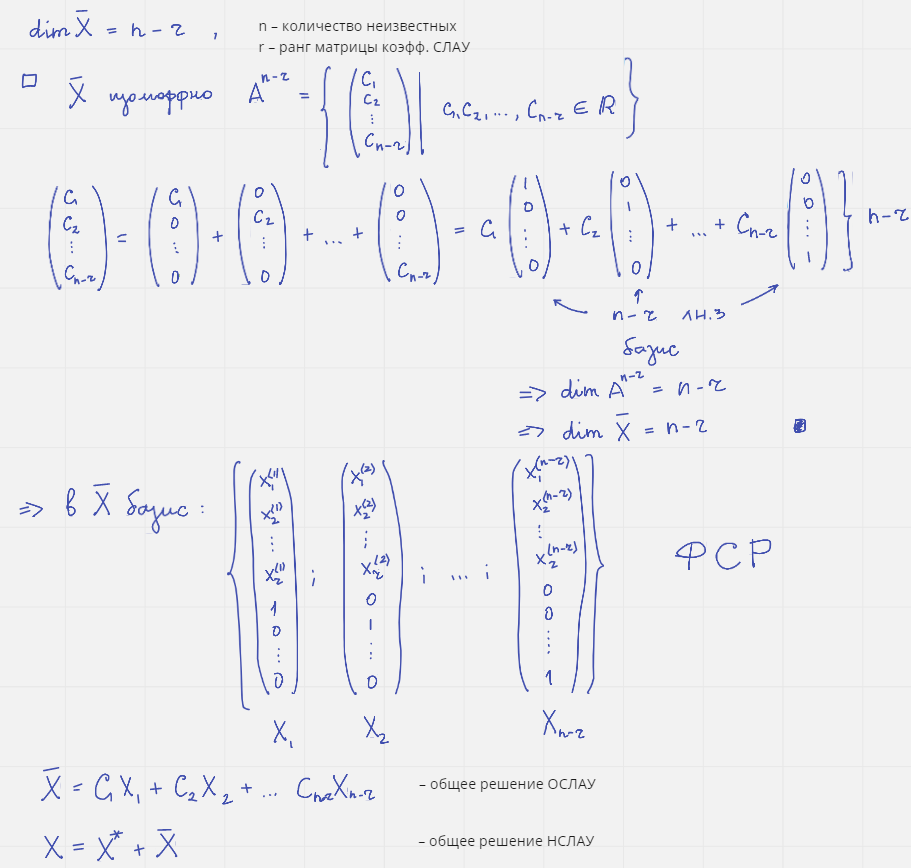 dim X̄ = n − r , n – количество неизвестных
r – ранг матрицы коэфф. СЛАУ
□ X̄ изоморфно Aⁿ⁻ʳ = { ( C₁ C₂ ⋮ Cₙ₋ᵣ ) | C₁, C₂, ..., Cₙ₋ᵣ ∈ ℝ }
( C₁ C₂ ⋮ Cₙ₋ᵣ ) = ( C₁ 0 ⋮ 0 ) + ( 0 C₂ ⋮ 0 ) + ... + ( 0 0 ⋮ Cₙ₋ᵣ ) = C₁ ( 1 0 ⋮ 0 ) + C₂ ( 0 1 ⋮ 0 ) + ... + Cₙ₋ᵣ ( 0 0 ⋮ 1 ) } n−r
n−r лн.з
базис
=> dim Aⁿ⁻ʳ = n−r
=> dim X̄ = n−r
=> в X̄ базис: { ( x₁⁽¹⁾ x₂⁽¹⁾ ⋮ xᵣ⁽¹⁾ 1 0 ⋮ 0 ) ; ( x₁⁽²⁾ x₂⁽²⁾ ⋮ xᵣ⁽²⁾ 0 1 ⋮ 0 ) ; ... ; ( x₁⁽ⁿ⁻ʳ⁾ x₂⁽ⁿ⁻ʳ⁾ ⋮ xᵣ⁽ⁿ⁻ʳ⁾ 0 0 ⋮ 1 ) } ФСР
X₁ X₂ Xₙ₋ᵣ
X̄ = C₁X₁ + C₂X₂ + ... Cₙ₋ᵣXₙ₋ᵣ – общее решение ОСЛАУ
X = X* + X̄ – общее решение НСЛАУ